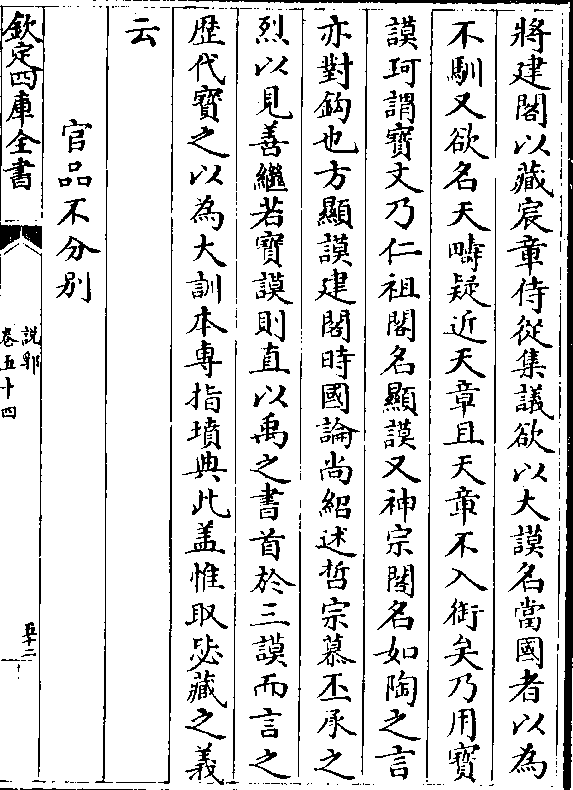 將建閣以藏宸章侍從集議欲以大謨名當國者以為
不馴又欲名天疇疑近天章且天章不入銜矣乃用寶
謨珂謂寶文乃仁祖閣名顯謨又神宗閣名如陶之言
亦對鈎也方顯謨建閣時國論尚紹述哲宗慕丕承之
烈以見善繼若寶謨則直以禹之書首於三謨而言之
歴代寶之以為大訓本専指墳典此盖惟取宓藏之義
云
官品不分別
欽定四庫全書
說郛
卷五十四